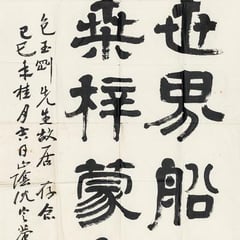 世界船
桒梓蒙
包玉剛先生故居 存念
己巳年桂月吉日山陰沈定菴